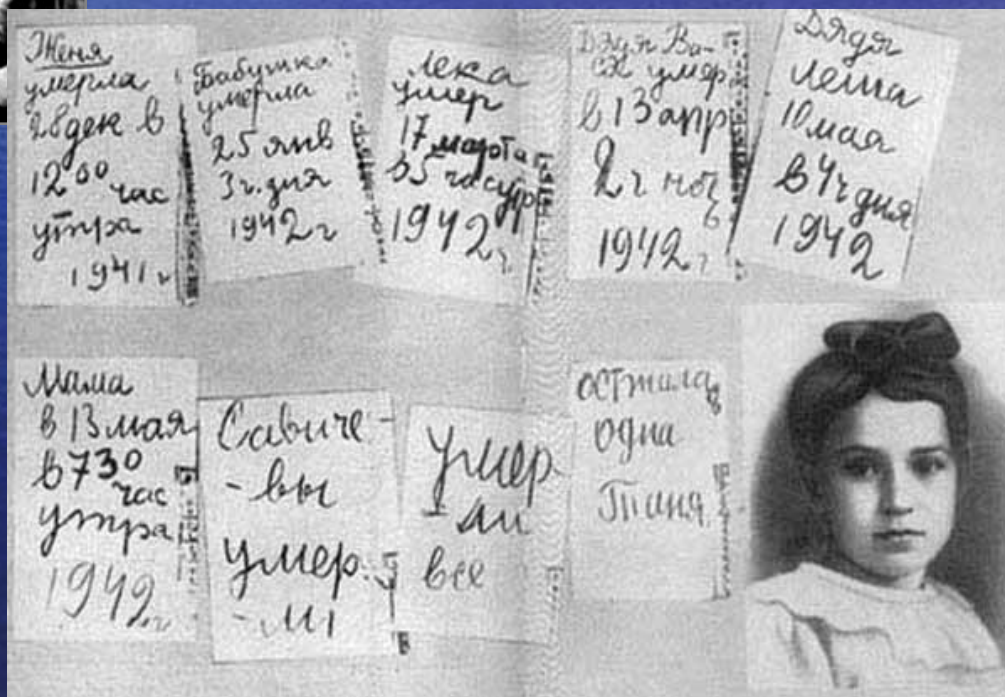 Женя
умерла
28 дек в
12 00 час
утра
1941 г
Бабушка
умерла
25 янв
3 ч. дня
1942 г
Лека
умер
17 марта
в 5 час утр
1942 г.
Дядя Ва-
ся умер
в 13 апр
2 ч ночь
1942 г
Дядя
Леша
10 мая
в 4 ч дня
1942
Мама
в 13 мая
в 7 30
час
утра
1942 г.
Савиче-
-вы
умер.
-ли
Умер
-ли
все
Осталась
одна
Таня.